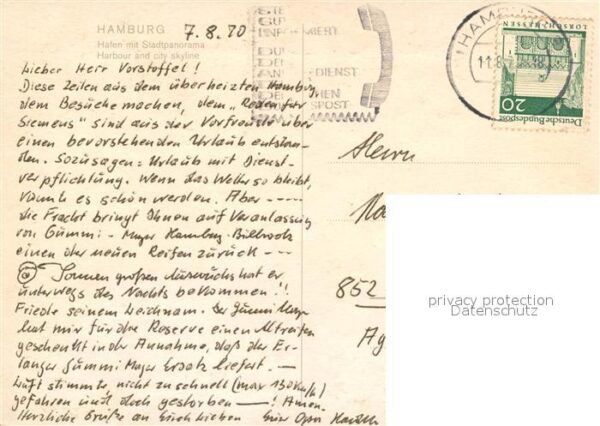 HAMBURG
7.8.70
Hafen mit Stadtpanorama
Harbour and city skyline
Lieber Herr Vorstoffel!
Diese Zeilen aus dem überheizten Hamburg,
dem Besuche machen, dem „Reden für
Siemens" sind aus der Vorfreude über
einen bevorstehenden Urlaub entstan-
den. Sozusagen: Urlaub mit Dienst-
verpflichtung. Wenn das Wetter so bleibt,
kann es schön werden. Aber ----
die Fracht bringt Ihnen auf Veranlassung
von Gummi-Mayer Hamburg-Billbrook
einen der neuen Reifen zurück --
großen Auswuchs hat er
unterwegs des Nachts bekommen!!
Friede seinem Leichnam. Der Gummi Mayer
hat mir für die Reserve einen Altreifen
geschenkt in der Annahme, daß der Er-
langer Gummi Mayer Ersatz liefert. —
Luft stimmte, nicht zu schnell (max 130 km/h)
gefahren und doch gestorben —! Amen.
Herzliche Grüße an Euch Lieben Euer Opa
DIENST
POST
HAMBURG
11.8.7
LORSCH/HESSEN
20
Deutsche Bundespost
Herrn
852
privacy protection
Datenschutz